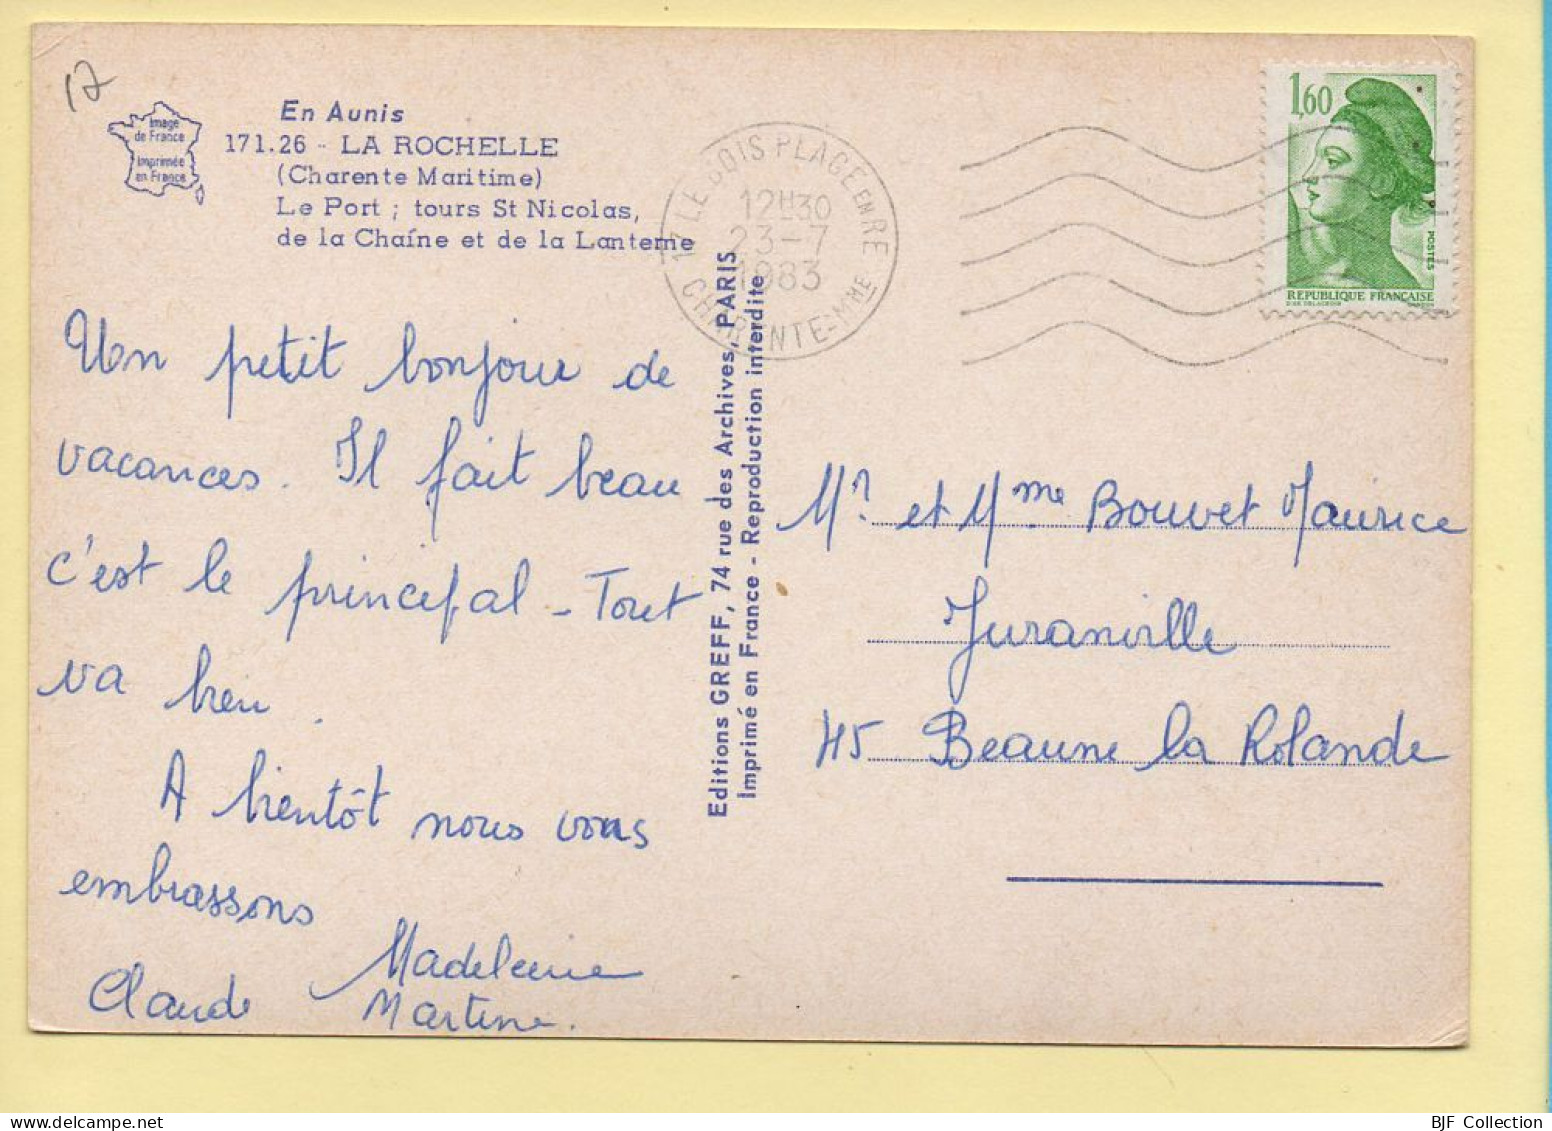 17
Image
de France
Imprimée
en France
En Aunis
171.26 - LA ROCHELLE
(Charente Maritime)
Le Port ; tours St Nicolas,
de la Chaîne et de la Lanterne
17 LE BOIS PLAGE EN RE
12H30
23-7
1983
CHARENTE-MME
1,60
POSTES
REPUBLIQUE FRANÇAISE
Un petit bonjour de
vacances. Il fait beau
c'est le principal - Tout
va bien.
A bientôt nous vous
embrassons
Madeleine
Claude Martine.
Editions GREFF, 74 rue des Archives, PARIS
Imprimé en France - Reproduction interdite
Mr et Mme Bouvet Maurice
Juranville
45 Beaune la Rolande
BJF Collection